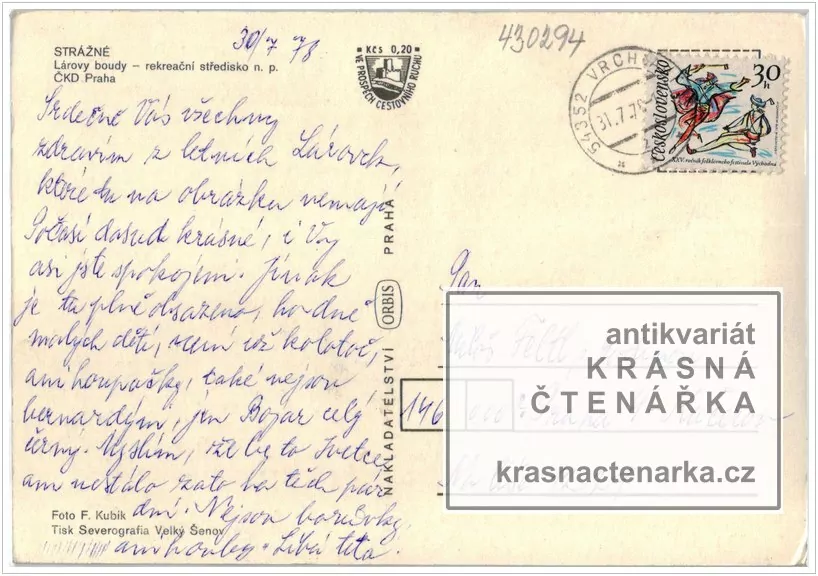 430294
30/7 78
STRÁŽNÉ
Lárovy boudy – rekreační středisko n. p.
ČKD Praha
Kčs 0,20
VE PROSPĚCH CESTOVNÍHO RUCHU
54352 VRCH
31.7.78
30h
Československo
XXV. ročník folklórneho festivalu Východná
Srdečně Vás všechny
zdravím z letních Lárovek,
které tu na obrázku nemají
Počasí dosud krásné, i Vy
asi jste spokojeni. Jinak
je tu plně obsazeno, hodně
malých dětí, není už kolotoč,
ani houpačky, také nejsou
bernardýni, jen Bojar celý
černý. Myslím, že by to Ivetce
ani nestálo zato na těch pár
dní. Nejsou borůvky,
ani houby. Líbá teta.
Foto F. Kubík
Tisk Severografia Velký Šenov
NAKLADATELSTVÍ ORBIS PRAHA
Pan
146 000
antikvariát
KRÁSNÁ
ČTENÁŘKA
krasnactenarka.cz